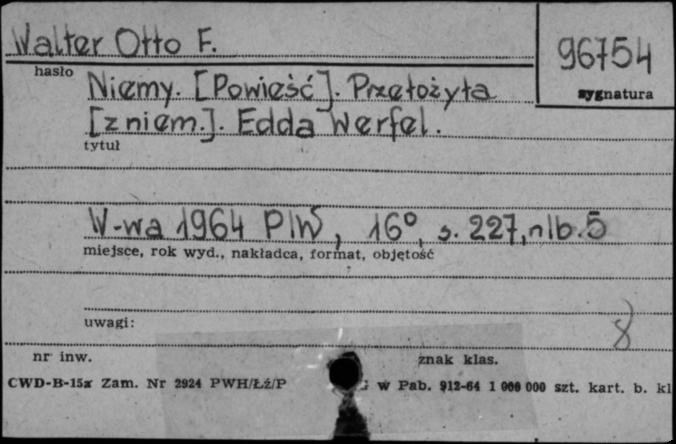 Walter Otto F.
96754
hasło
sygnatura
Niemy. [Powieść]. Przełożyła
[z niem.]. Edda Werfel.
tytuł
W-wa 1964 PIW, 16°, s. 227, nlb. 5
miejsce, rok wyd., nakładca, format, objętość
uwagi:
8
nr inw.
znak klas.
CWD-B-15x Zam. Nr 2924 PWH/Łź/P w Pab. 912-64 1 000 000 szt. kart. b. kl